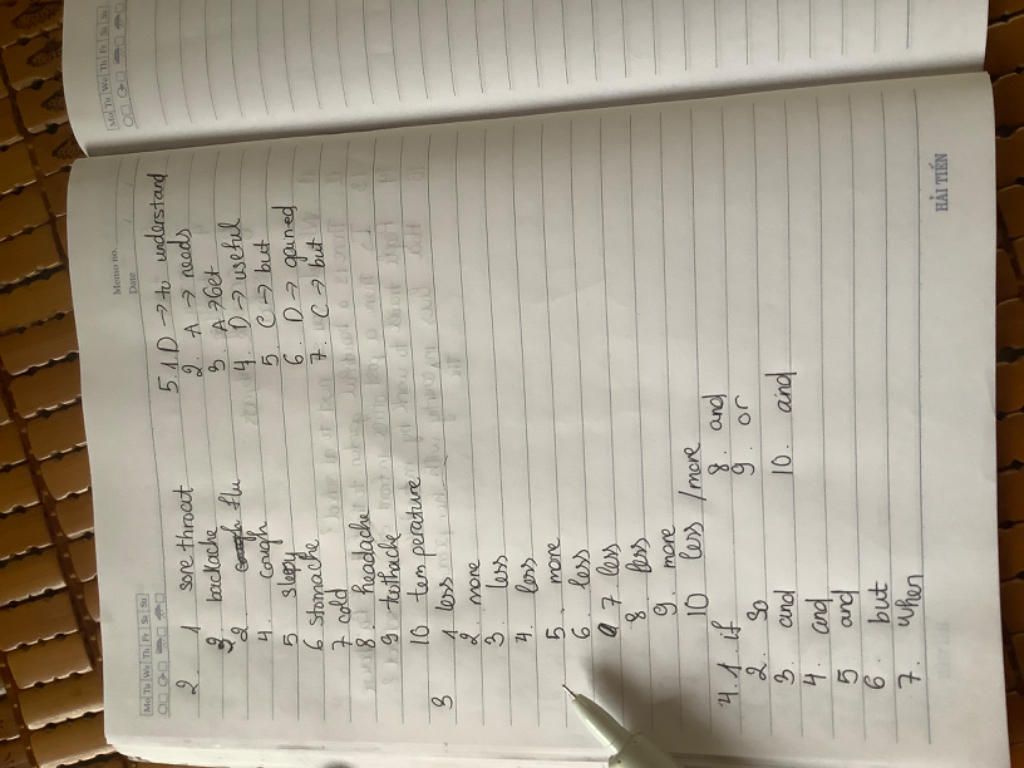 Mo Tu We Th Fr Sa Su
Memo no.
Date / /
2. 1 sore throat
2 backache
2. cough flu
4. cough
5 slepy
6 stomache
7 cold
8 headache
9 tothache
10 temperature
3 1 less
2. more
3. less
4. less
5. more
6. less
7 less
8 less
9. more
10 less / more
4. 1. if
2. so
3. and
4. and
5 and
6. but
7. when
8. and
9. or
10. and
5. 1. D → to understand
2. A → needs
3. A → Get
4. D → useful
5 C → but
6 D → gained
7. C → but
HẢI TIẾN
Mo Tu We Th Fr Sa Su